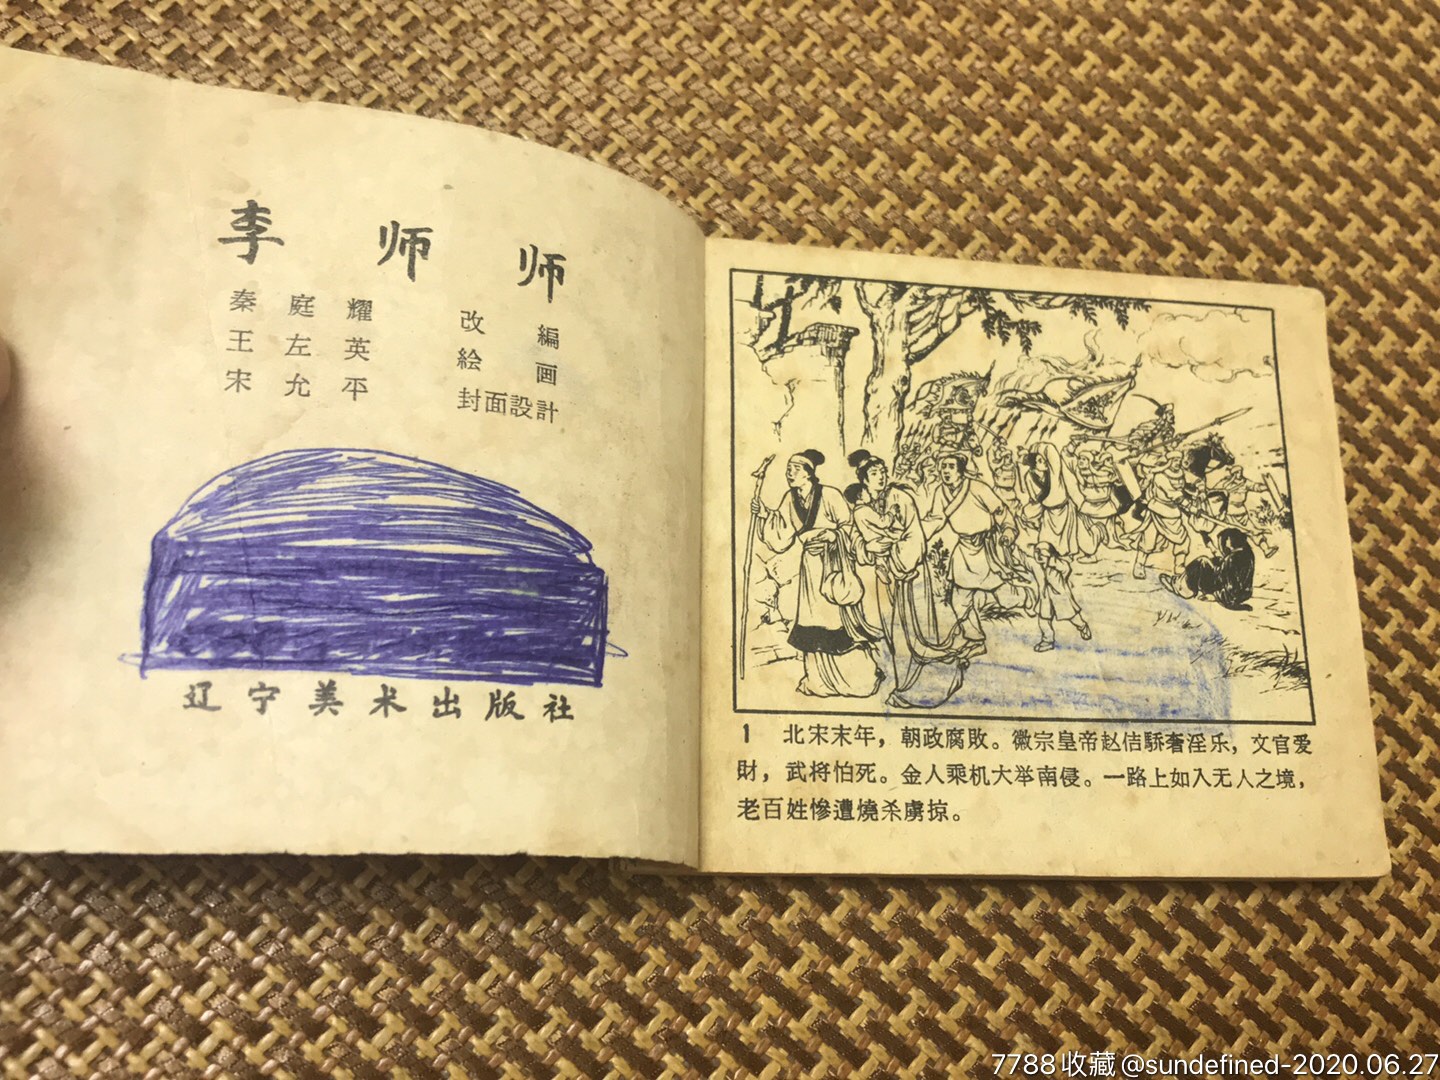 李师师
秦庭耀 改編
王左英 絵画
宋允平 封面設計
辽宁美术出版社
1 北宋末年，朝政腐敗。徽宗皇帝赵佶驕奢淫乐，文官爱
財，武将怕死。金人乘机大举南侵。一路上如入无人之境，
老百姓惨遭燒杀虜掠。
7788收藏@sundefined-2020.06.27